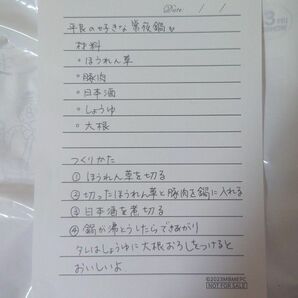 Date / /
平良の好きな常夜鍋
材料
・ほうれん草
・豚肉
・日本酒
・しょうゆ
・大根
つくりかた
① ほうれん草を切る
② 切ったほうれん草と豚肉を鍋に入れる
③ 日本酒を煮切る
④ 鍋が沸とうしたらできあがり
タレはしょうゆに大根おろしをつけると
おいしいよ
©2023MBMEPC
NOT FOR SALE